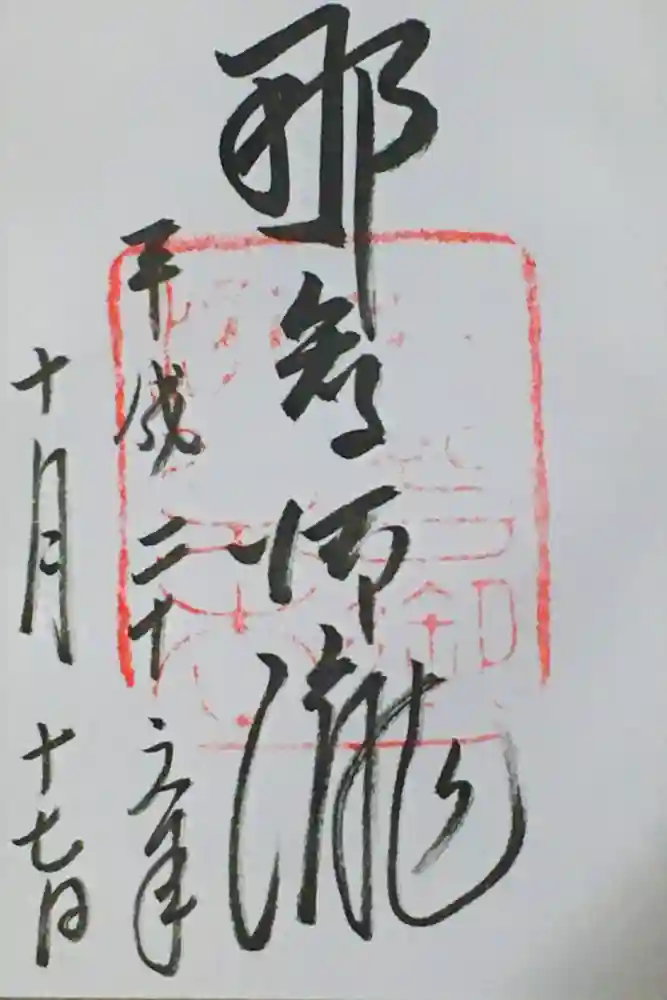 那智御瀧
平成二十六年
十月十七日